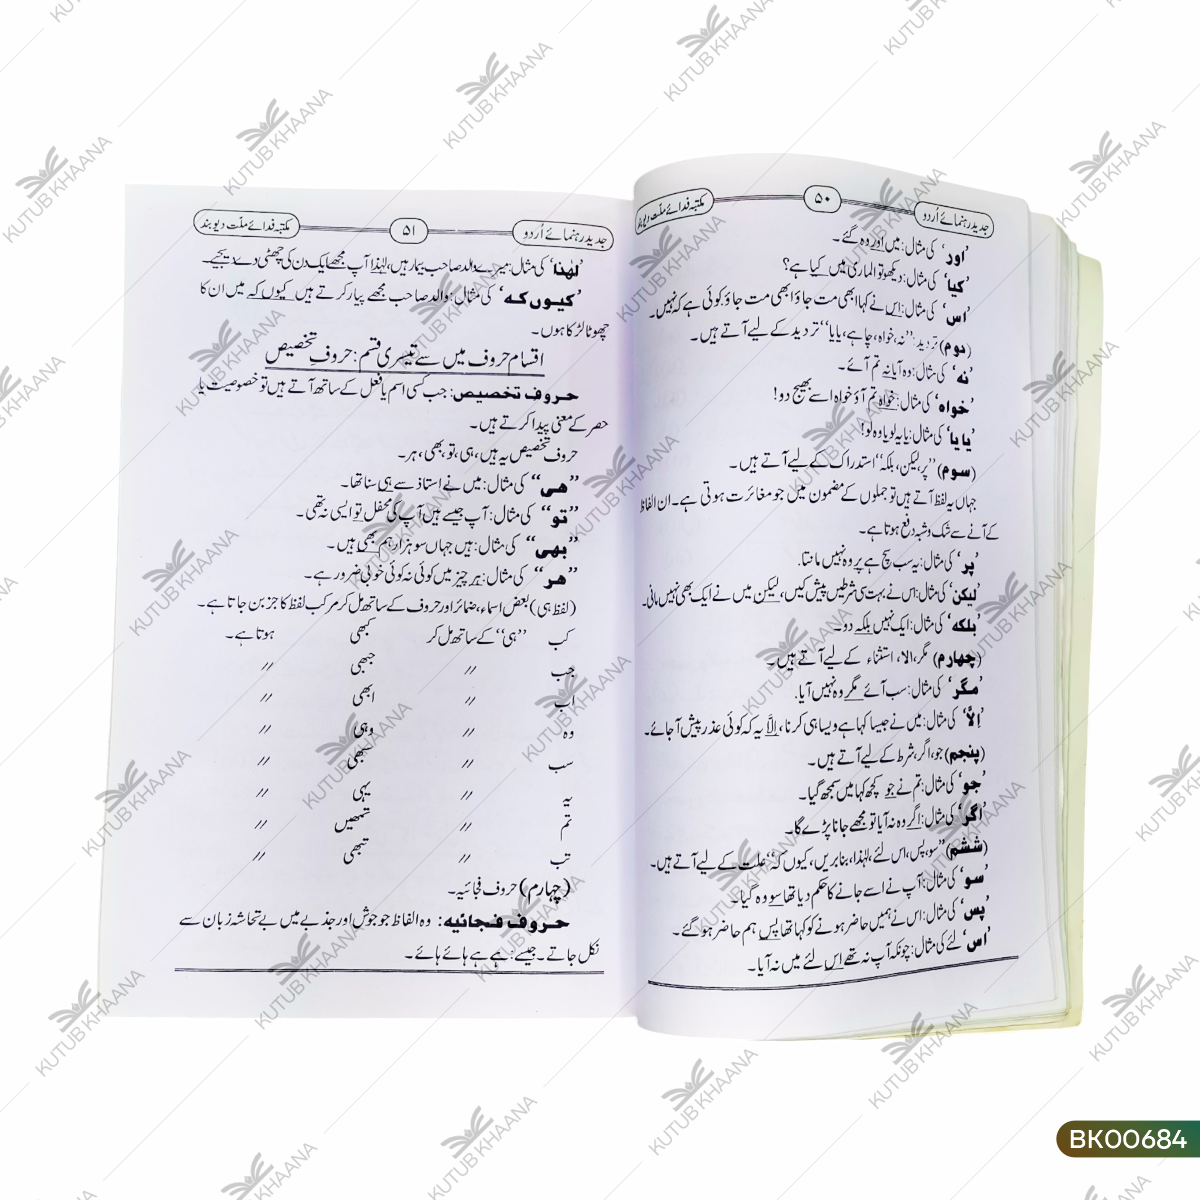 جدید رہنمائے اُردو ۵۰ مکتبہ فدائے ملّت دیوبند
’اور‘ کی مثال: میں اور وہ گئے۔
’کیا‘ کی مثال: دیکھو تو الماری میں کیا ہے؟
’اس‘ کی مثال: اس نے کہا ابھی مت جاؤ ابھی مت جاؤ، کوئی ہے کہ نہیں۔
(دوم) تردید: ’’نہ، خواہ، چاہے، یا یا‘‘ تردید کے لیے آتے ہیں۔
’نہ‘ کی مثال: وہ آیا نہ تم آئے۔
’خواہ‘ کی مثال: خواہ تم آؤ خواہ اسے بھیج دو!
’یا یا‘ کی مثال: یا یہ لو یا وہ لو!
(سوم) ’’پر، لیکن، بلکہ‘‘ استدراک کے لیے آتے ہیں۔
جہاں یہ لفظ آتے ہیں تو جملوں کے مضمون میں جو مغائرت ہوتی ہے۔ ان الفاظ
کے آنے سے شک و شبہ دفع ہوتا ہے۔
’پر‘ کی مثال: یہ سب سچ ہے پر وہ نہیں مانتا.
’لیکن‘ کی مثال: اس نے بہت سی شرطیں پیش کیں، لیکن میں نے ایک بھی نہیں مانی.
’بلکہ‘ کی مثال: ایک نہیں بلکہ دو۔
(چہارم) مگر، الا، استثناء کے لیے آتے ہیں۔
’مگر‘ کی مثال: سب آئے مگر وہ نہیں آیا.
’اِلَّا‘ کی مثال: میں نے جیسا کہا ہے ویسا ہی کرنا، اِلَّا یہ کہ کوئی عذر پیش آجائے۔
(پنجم) جو، اگر، شرط کے لیے آتے ہیں۔
’جو‘ کی مثال: تم نے جو کچھ کہا میں سمجھ گیا۔
’اگر‘ کی مثال: اگر وہ نہ آیا تو مجھے جانا پڑے گا۔
(ششم) ’’سو، پس، اس لئے، لہٰذا، بنابریں، کیوں کہ‘‘ علت کے لیے آتے ہیں۔
’سو‘ کی مثال: آپ نے اسے جانے کا حکم دیا تھا سو وہ گیا۔
’پس‘ کی مثال: اس نے ہمیں حاضر ہونے کو کہا تھا پس ہم حاضر ہو گئے۔
’اس‘ لئے کی مثال: چونکہ آپ نہ تھے اس لئے میں نہ آیا۔
جدید رہنمائے اُردو ۵۱ مکتبہ فدائے ملّت دیوبند
’لہٰذا‘ کی مثال: میرے والد صاحب بیمار ہیں، لہٰذا آپ مجھے ایک دن کی چھٹی دے دیجیے۔
’کیوں کہ‘ کی مثال: والد صاحب مجھے پیار کرتے ہیں کیوں کہ میں ان کا
چھوٹا لڑکا ہوں۔
اقسام حروف میں سے تیسری قسم: حروفِ تخصیص
حروف تخصیص: جب کسی اسم یا فعل کے ساتھ آتے ہیں تو خصوصیت یا
حصر کے معنی پیدا کرتے ہیں۔
حروف تخصیص یہ ہیں، ہی، تو، بھی، ہر۔
’’ہی‘‘ کی مثال: میں نے استاذ سے ہی سنا تھا۔
’’تو‘‘ کی مثال: آپ جیسے ہیں آپ کی محفل تو ایسی نہ تھی۔
’’بھی‘‘ کی مثال: ہیں جہاں سو ہزار ہم بھی ہیں۔
’’ہر‘‘ کی مثال: ہر چیز میں کوئی نہ کوئی خوبی ضرور ہے۔
(لفظ ہی) بعض اسماء، ضمائر اور حروف کے ساتھ مل کر مرکب لفظ کا جز بن جاتا ہے۔
کب ’’ہی‘‘ کے ساتھ مل کر کبھی ہوتا ہے۔
جب 〃 جبھی 〃
اب 〃 ابھی 〃
وہ 〃 وہی 〃
سب 〃 سبھی 〃
یہ 〃 یہی 〃
تم 〃 تمھیں 〃
تب 〃 تبھی 〃
(چہارم) حروف فجائیہ۔
حروف فجائیہ: وہ الفاظ جو جوش اور جذبے میں بے تحاشہ زبان سے
نکل جاتے۔ جیسے: ہے ہے ہائے ہائے۔
KUTUB KHAANA
BK00684